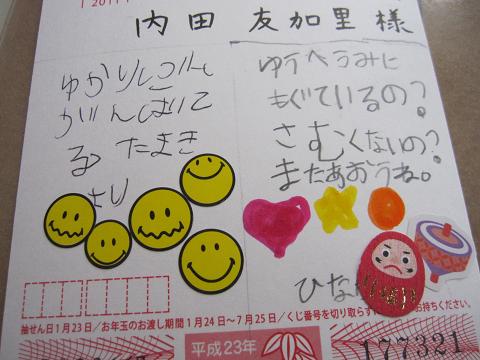 2011
内田 友加里 様
ゆうべうみに
もぐているの?
さむくないの?
またあおうね。
ひな
ゆかりしごん
がんばて
る たまき
より
抽せん日1月23日/お年玉のお渡し期間 1月24日〜7月25日/くじ番号を切り取らず
お持ちください。
平成23年
177321